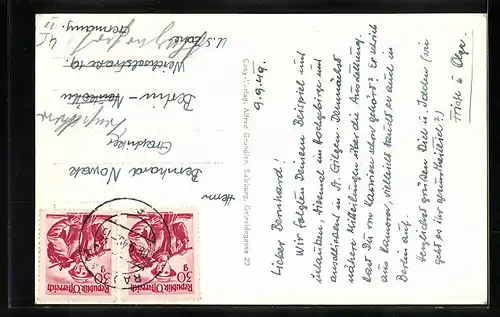 9.9.49.
Lieber Bernhard!
Wir folgten Deinem Beispiel und
urlauben, diesmal im Hochgebirge und
anschließend in St. Gilgen. Demnächst
nähere Mitteilungen über die Ausstellung.
Hast Du von schon gehört? Er schrieb
aus Hannover, vielleicht taucht er auch in
Berlin auf.
Herzlichst grüßen Dich u. (wie
geht es ihr gesundheitlich?)
u. Olga.
Cosy-Verlag, Alfred Gründler, Salzburg, Getreidegasse 22
Herrn
Bernhard Nowak
Graphiker
Berlin - Neukölln
Weichselstrasse 19.
U.S. Zone
Germany.
Republik Österreich
30 g
Republik Österreich
30 g